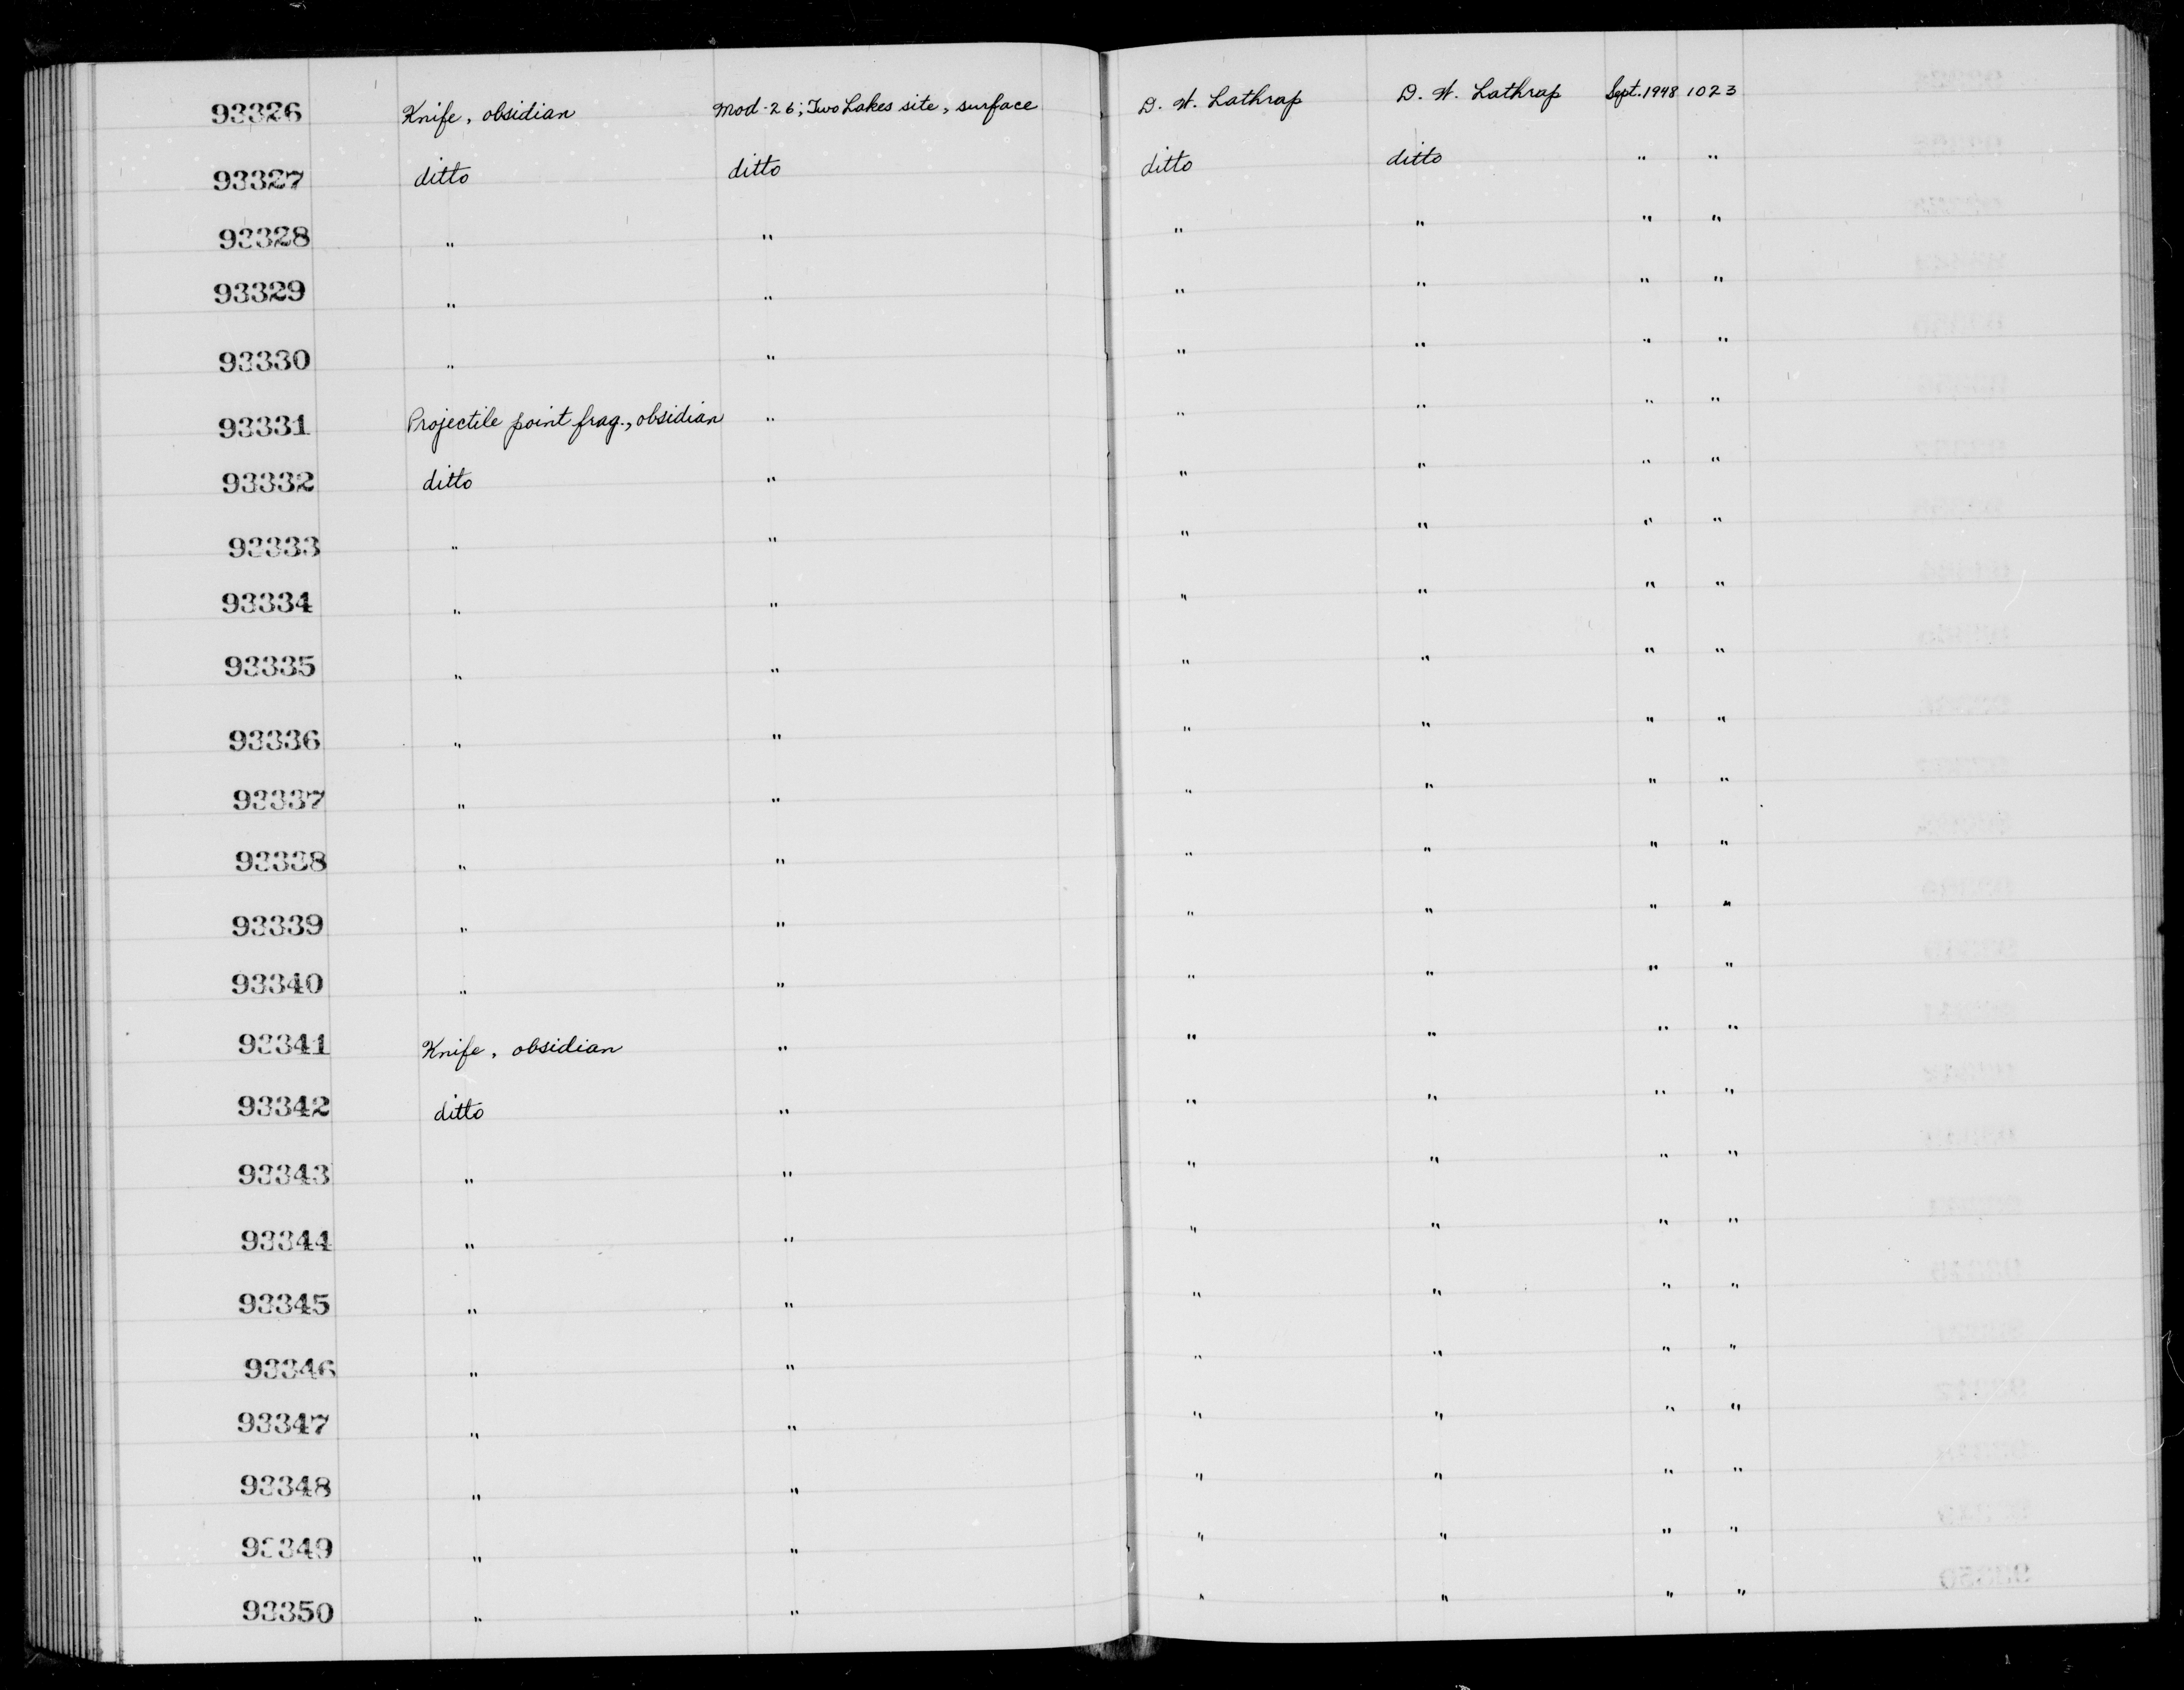 93326 Knife, obsidian Mod-26; Two Lakes site, surface D. W. Lathrap D. W. Lathrap Sept. 1948 1023
93327 ditto ditto ditto ditto " "
93328 " " " " " "
93329 " " " " " "
93330 " " " " " "
93331 Projectile point frag., obsidian " " " " "
93332 ditto " " " " "
93333 " " " " " "
93334 " " " " " "
93335 " " " " " "
93336 " " " " " "
93337 " " " " " "
93338 " " " " " "
93339 " " " " " "
93340 " " " " " "
93341 Knife, obsidian " " " " "
93342 ditto " " " " "
93343 " " " " " "
93344 " " " " " "
93345 " " " " " "
93346 " " " " " "
93347 " " " " " "
93348 " " " " " "
93349 " " " " " "
93350 " " " " " "